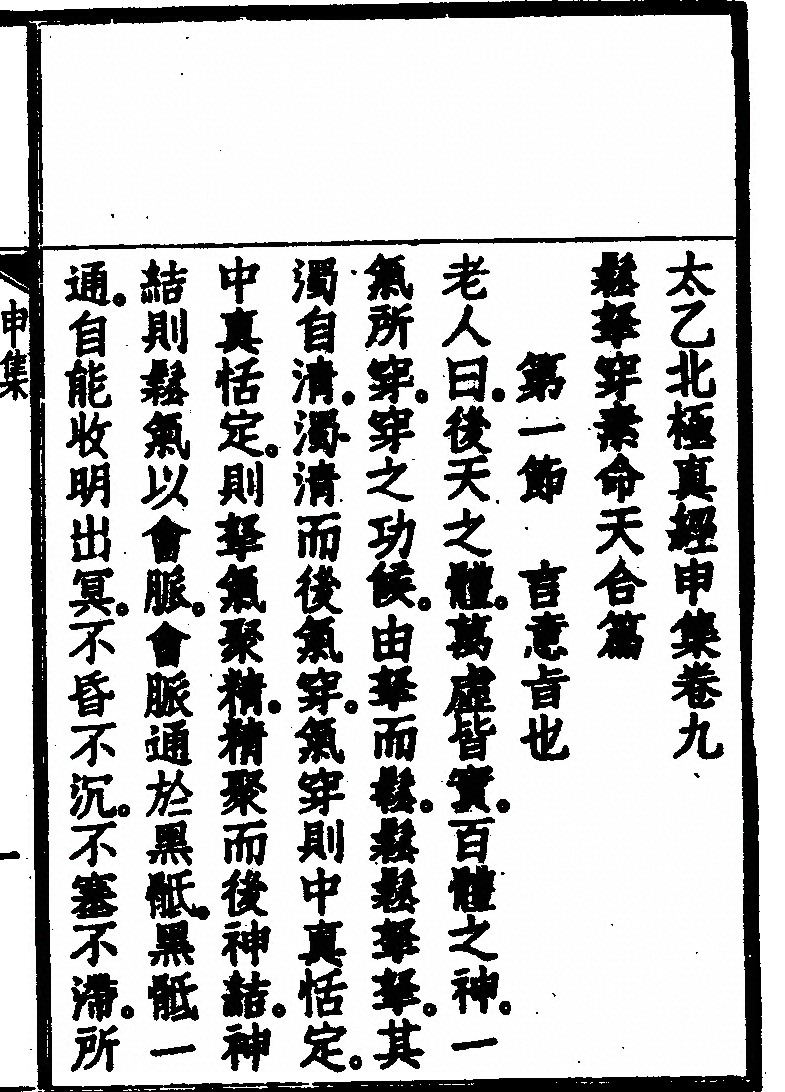 太乙北極真經申集卷九
鬆拏穿素命天合篇
第一節　言意旨也
老人曰。後天之體。萬虛皆實。百體之神。一
氣所穿。穿之功候。由拏而鬆。鬆鬆拏拏。其
濁自清。濁清而後氣穿。氣穿則中真恬定。
中真恬定。則拏氣聚精。精聚而後神結。神
結則鬆氣以會脈。會脈通於黑骶。黑骶一
通。自能收明出冥。不昏不沉。不塞不滯。所
申集
一